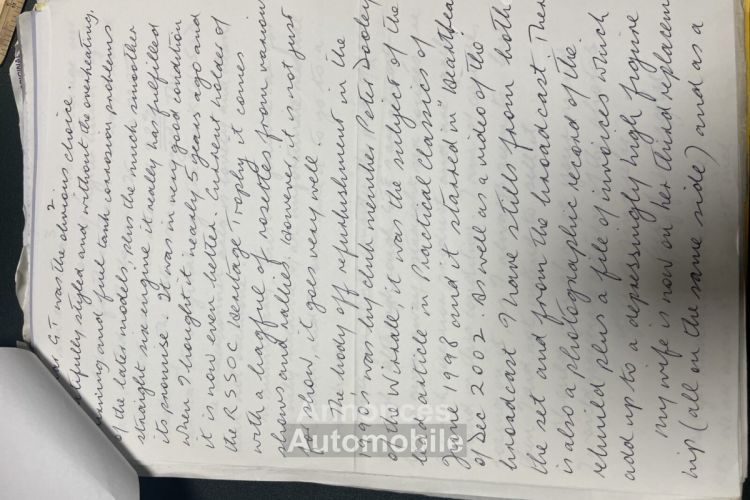 2.
G.T was the obvious choice.
styled and without the overheating,
and fuel tank corrosion problems
of the later models, plus the much smoother
straight six engine it really has fulfilled
its promise. It was in very good condition
when I bought it nearly 5 years ago and
it is now even better. Current holder of
the RSSOC Heritage Trophy it comes
with a bagful of rosettes from various
shows and rallies. However, it is not just
for show, it goes very well.
The body off refurbishment in the
was by club member Peter Dooley
of the Wirrall, it was the subject of the
lead article in Practical Classics of
June 1998 and it starred in "Heartbeat
of Dec 2002. As well as a video of the
broadcast I have stills from both
the set and from the broadcast. There
is also a photographic record of the
rebuild plus a file of invoices which
add up to a depressingly high figure
My wife is now on her third replacement
hip (all on the same side) and as a
Annonces
Automobile
ORIGINAL